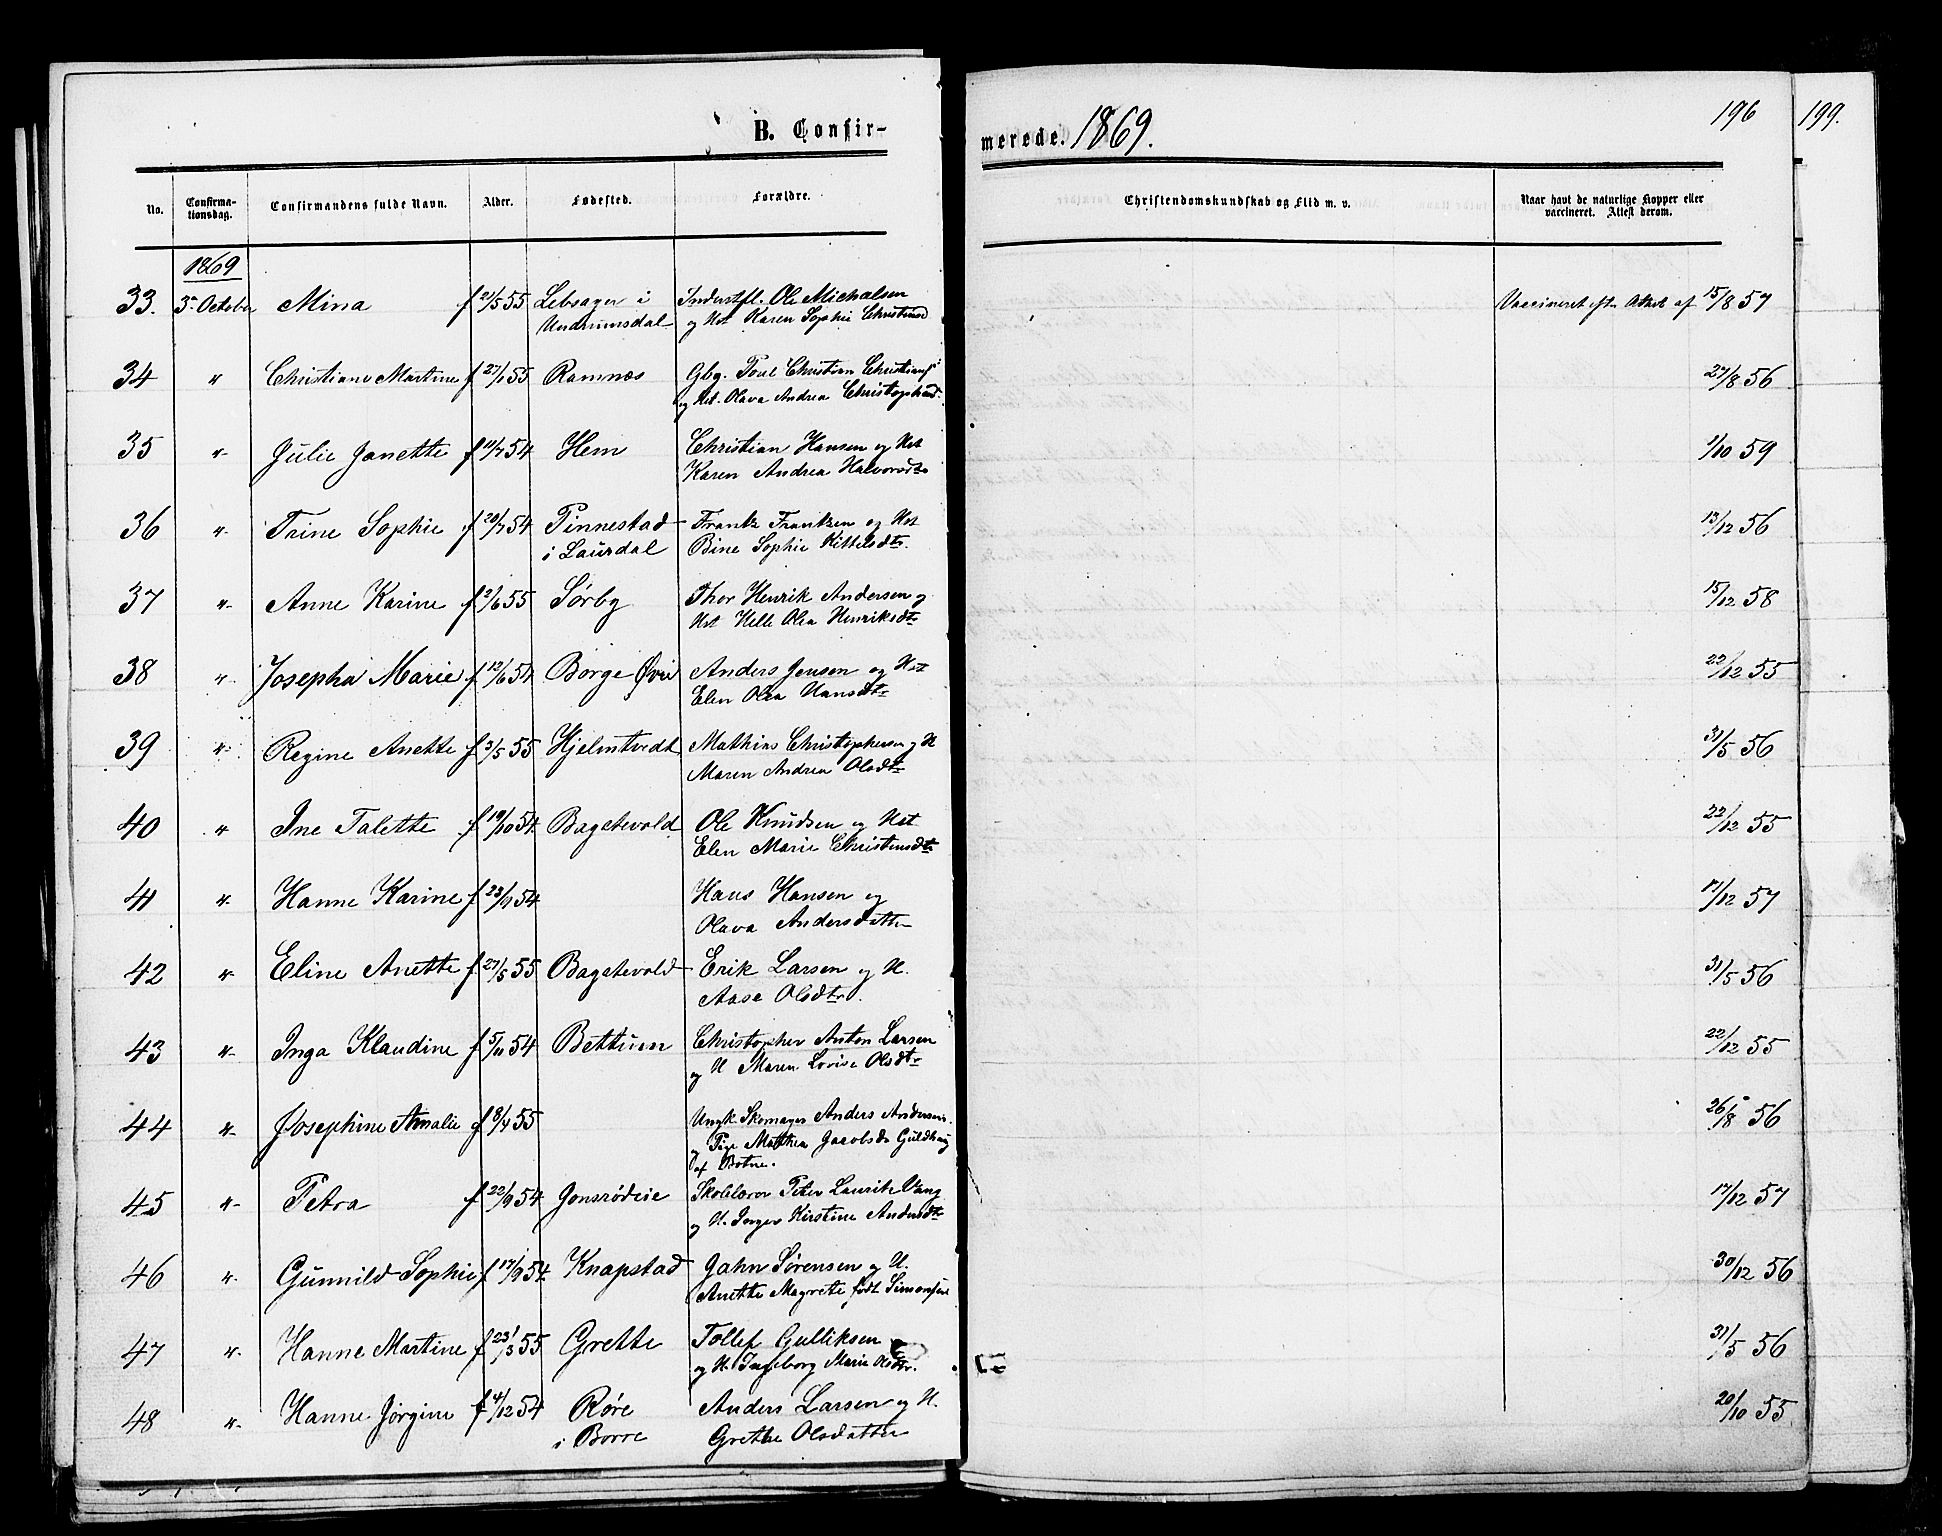 B. Confir-
merede. 1869.
196
199.
No.
Confirma-
tionsdag.
Confirmandens fulde Navn.
Alder.
Fødested.
Forældre.
Christendomskundskab og Flid m. v.
Naar havt de naturlige Kopper eller
vaccineret. Attest derom.
1869
33. 3. October Mina f 21/5 55 Lebsager i Inderstfl. Ole Michalsen Vaccineret eft. Attest af 15/8 57
Undrumsdal og Hst Karen Sophie
34 " Christiane Martine f 27/1 55 Ramnæs Gbg. Poul Christian 27/8 56
og Hst. Olava Andrea
35 " Julie Janette f 19/7 54 Hem Christian Hansen og Hst 1/10 59
Karen Andrea Halvorsdtr
36 " Trine Sophie f 20/7 54 Pinnestad Frantz Frantzen og Hst 13/12 56
i Laurdal Bine Sophie Kittelsdtr.
37 " Anne Karine f 2/6 55 Sørby Thor Henrik Andersen og 15/12 58
Hst Helle Olea Henriksdtr
38 " Josepha Marie f 12/6 54 Borge Øvre Anders Jensen og Hst 22/12 55
Elen Olea Hansdtr
39 " Regine Anette f 3/5 55 Hjelmtvedt Mathias Christophersen og H 31/5 56
Maren Andrea Olsdtr
40 " Ine Talette f 19/10 54 Bagstevold Ole Knudsen og Hst. 22/12 55
Elen Marie Christensdtr
41 " Hanne Karine f 23/9 54 Hans Hansen og 17/12 57
Olava Andersdatter
42 " Eline Anette f 27/5 55 Bagstevold Erik Larsen og H. 31/5 56
Aase Olsdtr.
43 " Inga Klaudine f 5/11 54 Bettum Christopher Anton Larsen 22/12 55
og H Maren Lovise Olsdtr
44 " Josephine Amalie f 8/4 55 Ungk. Skomager Anders Andersen 26/8 56
og Pige Mathea Jacobsd. Guldhaug
af Botne.
45 " Petra f 22/9 54 Jonsrødeie Skolelærer Peter Lauritz Vang 17/12 57
og H. Inger Kirstine Andersdtr
46 " Gunnild Sophie f 17/9 54 Knapstad Jahn Sørensen og H. 30/12 56
Anette Magrete født Simonsen
47 " Hanne Martine f 23/3 55 Grette Tollef Gulliksen 31/5 56
og H. Ingeborg Marie Olsdtr.
48 " Hanne Jørgine f 4/12 54 Røre Anders Larsen og H. 20/10 55
i Borre Grethe Olsdatter